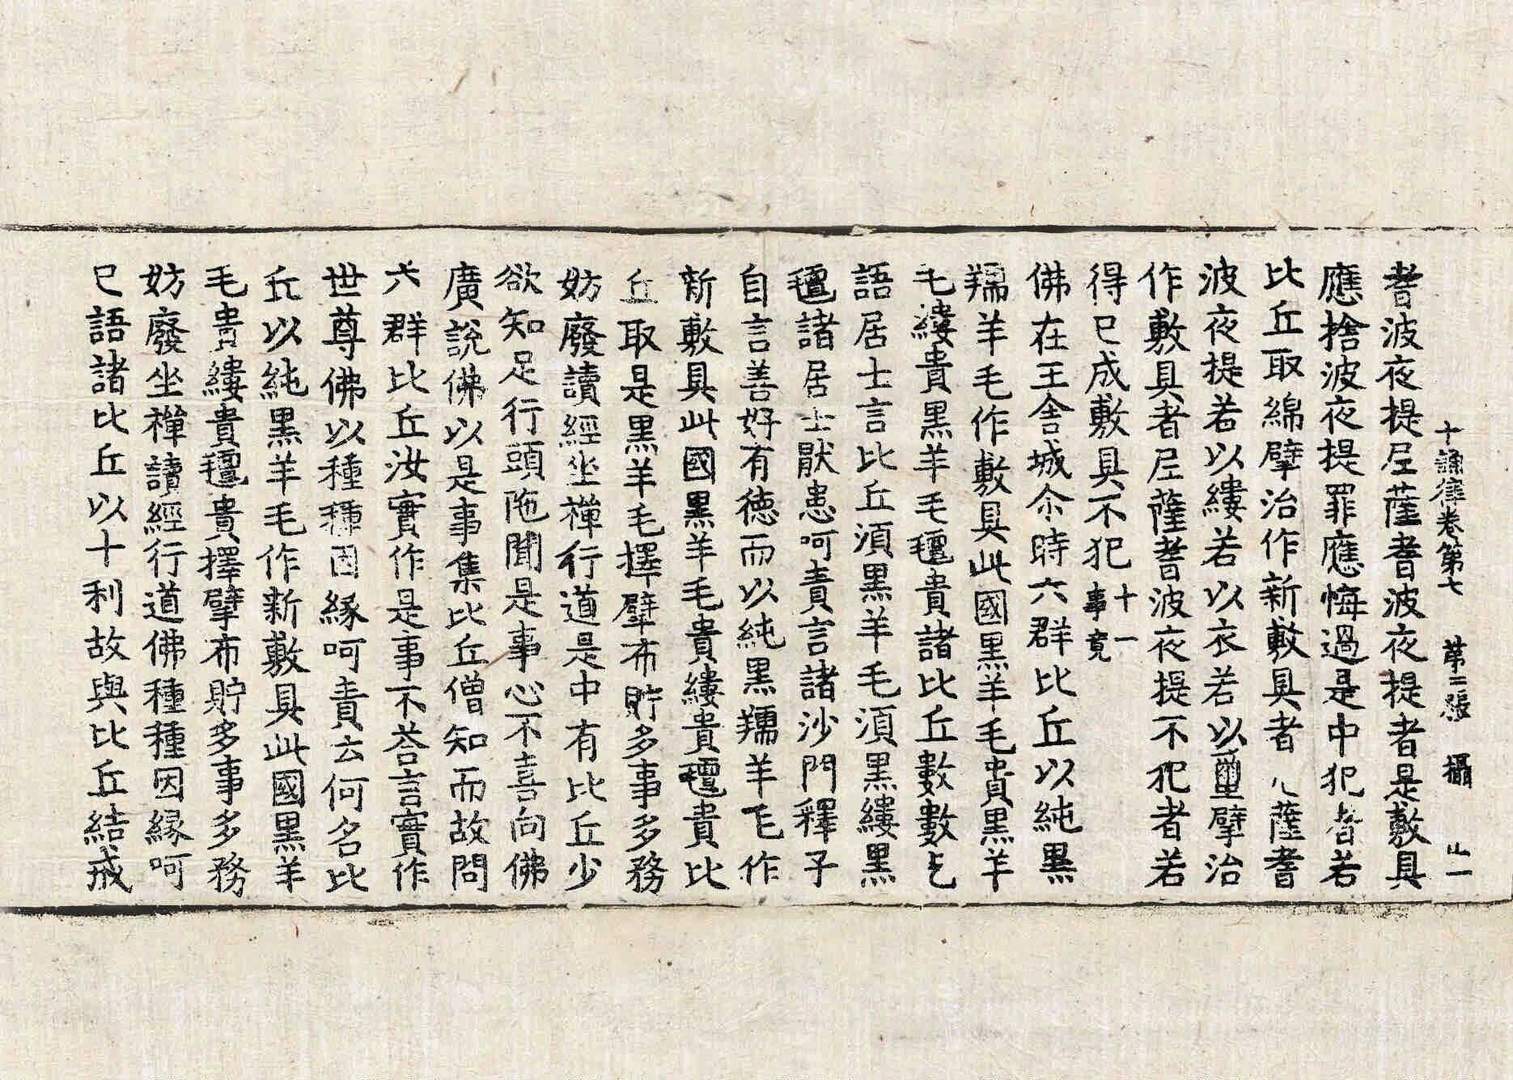 十誦律卷第七 第二張 攝 止一
耆波夜提尼薩耆波夜提者是敷具
應捨波夜提罪應悔過是中犯者若
比丘取綿擘治作新敷具者尼薩耆
波夜提若以縷若以衣若以壐擘治
作敷具者尼薩耆波夜提不犯者若
得已成敷具不犯十一事竟
佛在王舍城尒時六群比丘以純黒
羺羊毛作敷具此國黒羊毛貴黒羊
毛縷貴黒羊毛氊貴諸比丘數數乞
語居士言比丘湏黒羊毛湏黒縷黒
氊諸居士猒患呵責言諸沙門釋子
自言善好有徳而以純黒羺羊毛作
新敷具此國黒羊毛貴縷貴氊貴比
丘取是黒羊毛擇擘布貯多事多務
妨廢讀經坐禪行道是中有比丘少
欲知足行頭陁聞是事心不喜向佛
廣說佛以是事集比丘僧知而故問
六群比丘汝實作是事不荅言實作
世尊佛以種種因縁呵責云何名比
丘以純黒羊毛作新敷具此國黒羊
毛貴縷貴氊貴擇擘布貯多事多務
妨廢坐禪讀經行道佛種種因縁呵
已語諸比丘以十利故與比丘結戒